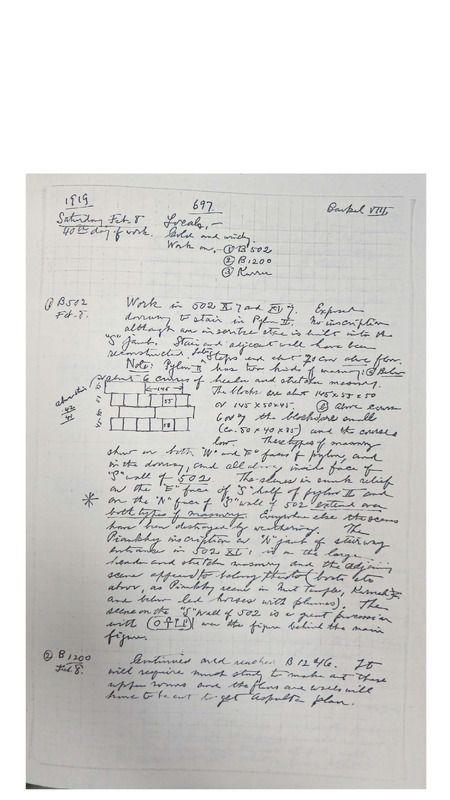 1919
697.
Barkal VIII,
Saturday Feb. 8
40th day of work.
Locals,—
Cold and windy
Work on,— ① B 502
② B 1200
③ Kurru
① B 502
Feb. 8.
Work in 502 and Exposed
doorway to stair in Pylon II. No inscription
although one inscribed stone is built into the
"S" jamb. Stair and adjacent wall have been
reconstructed later. Steps and about 70 cm above floor.
Note: Pylon II has two kinds of masonry; ① Below
about 6 courses of header and stretcher masonry.
145
55
58
The blocks are about 145 x 55 x 50
or 145 x 50 x 45. ② Above course
6 or 7 the blocks are small
(ca. 50 x 40 x 35) and the courses
low. These types of masonry
show on both "W" and "E" faces of pylon, and
in the doorway, and all along inside face of
"S" wall of 502. The scenes in sunk relief
on the "E" face of "S" half of pylon II and
on the "N" face of "S" wall of 502 extend over
both types of masonry. Everywhere else the scenes
have been destroyed by weathering. The
Piankhy inscription on "N" jamb of stairway
entrance in 502 is on the large
header and stretcher masonry and the adjoining
scene appears to belong the boats also
above, as Piankhy scene in Mut Temple, Karnak
and below led horses with plumes). The
scene on the "S" wall of 502 is a great procession
with over the figure behind the main
figure.
② B 1200
Feb. 8.
Continued and reached B 12 It
will require much study to make out these
upper rooms and the floors and walls will
have to be cut to get plan.